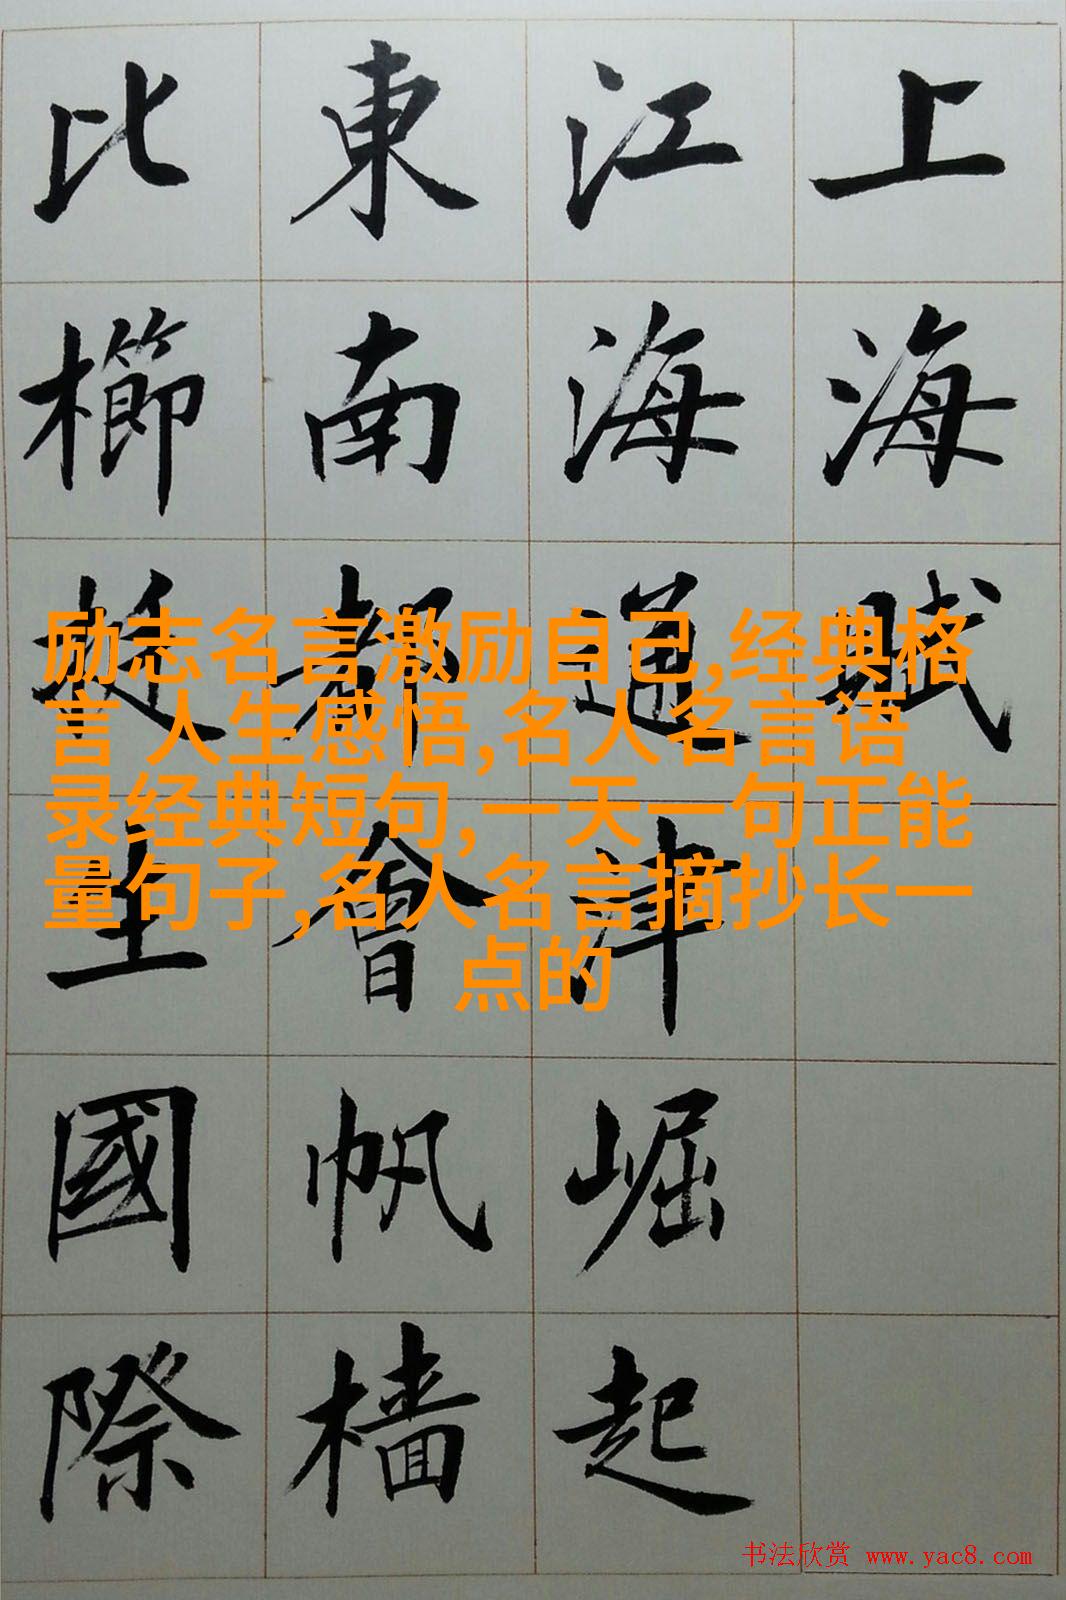 上海賦
江海通津崛起
東南都會帆檣
比櫛挺立國際
励志名言激励自己,经典格
言 人生感悟,名人名言语
录经典短句,一天一句正能
量句子,名人名言摘抄长一
点的
书法欣赏 www.yac8.com